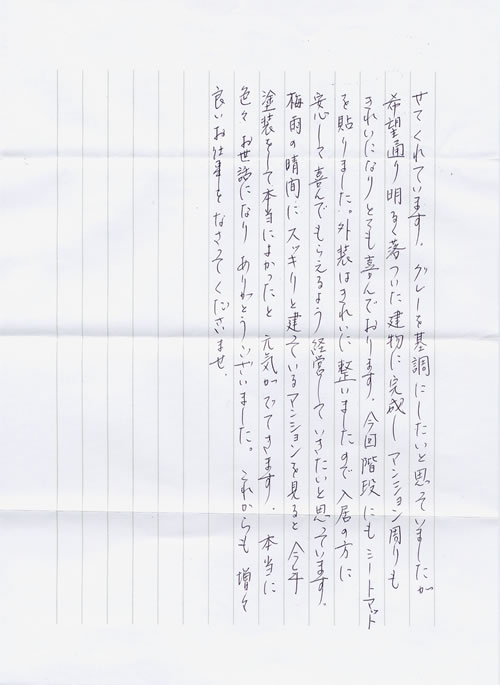 せてくれています。グレーを基調にしたいと思っていましたが
希望通り明るく落ついた建物に完成しマンション周りも
きれいになりとても喜んでおります。今回階段にもシートマット
を貼りました。外装はきれいに整いましたので入居の方に
安心して喜んでもらえるよう経営していきたいと思っています。
梅雨の晴間にスッキリと建っているマンションを見ると今年
塗装をして本当によかったと元気がでてきます。本当に
色々お世話になりありがとうございました。これからも増々
良いお仕事をなさってくださいませ。